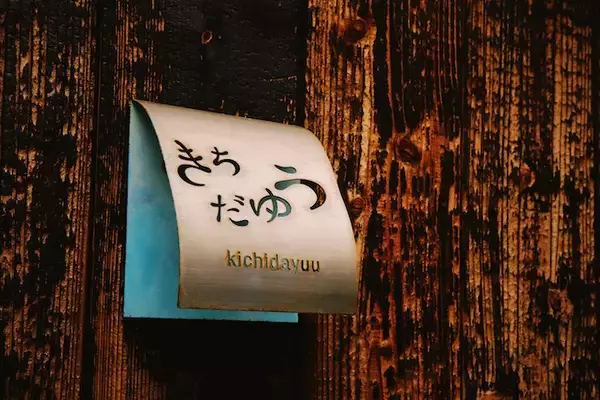 きち
だゆう
kichidayuu